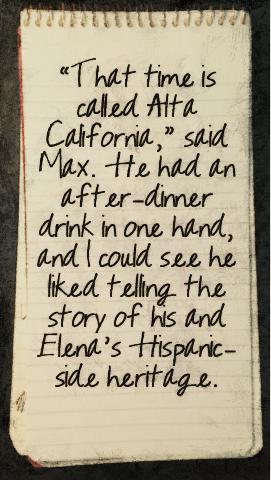 “That time is
called Alta
California,” said
Max. He had an
after-dinner
drink in one hand,
and I could see he
liked telling the
story of his and
Elena’s Hispanic-
side heritage.